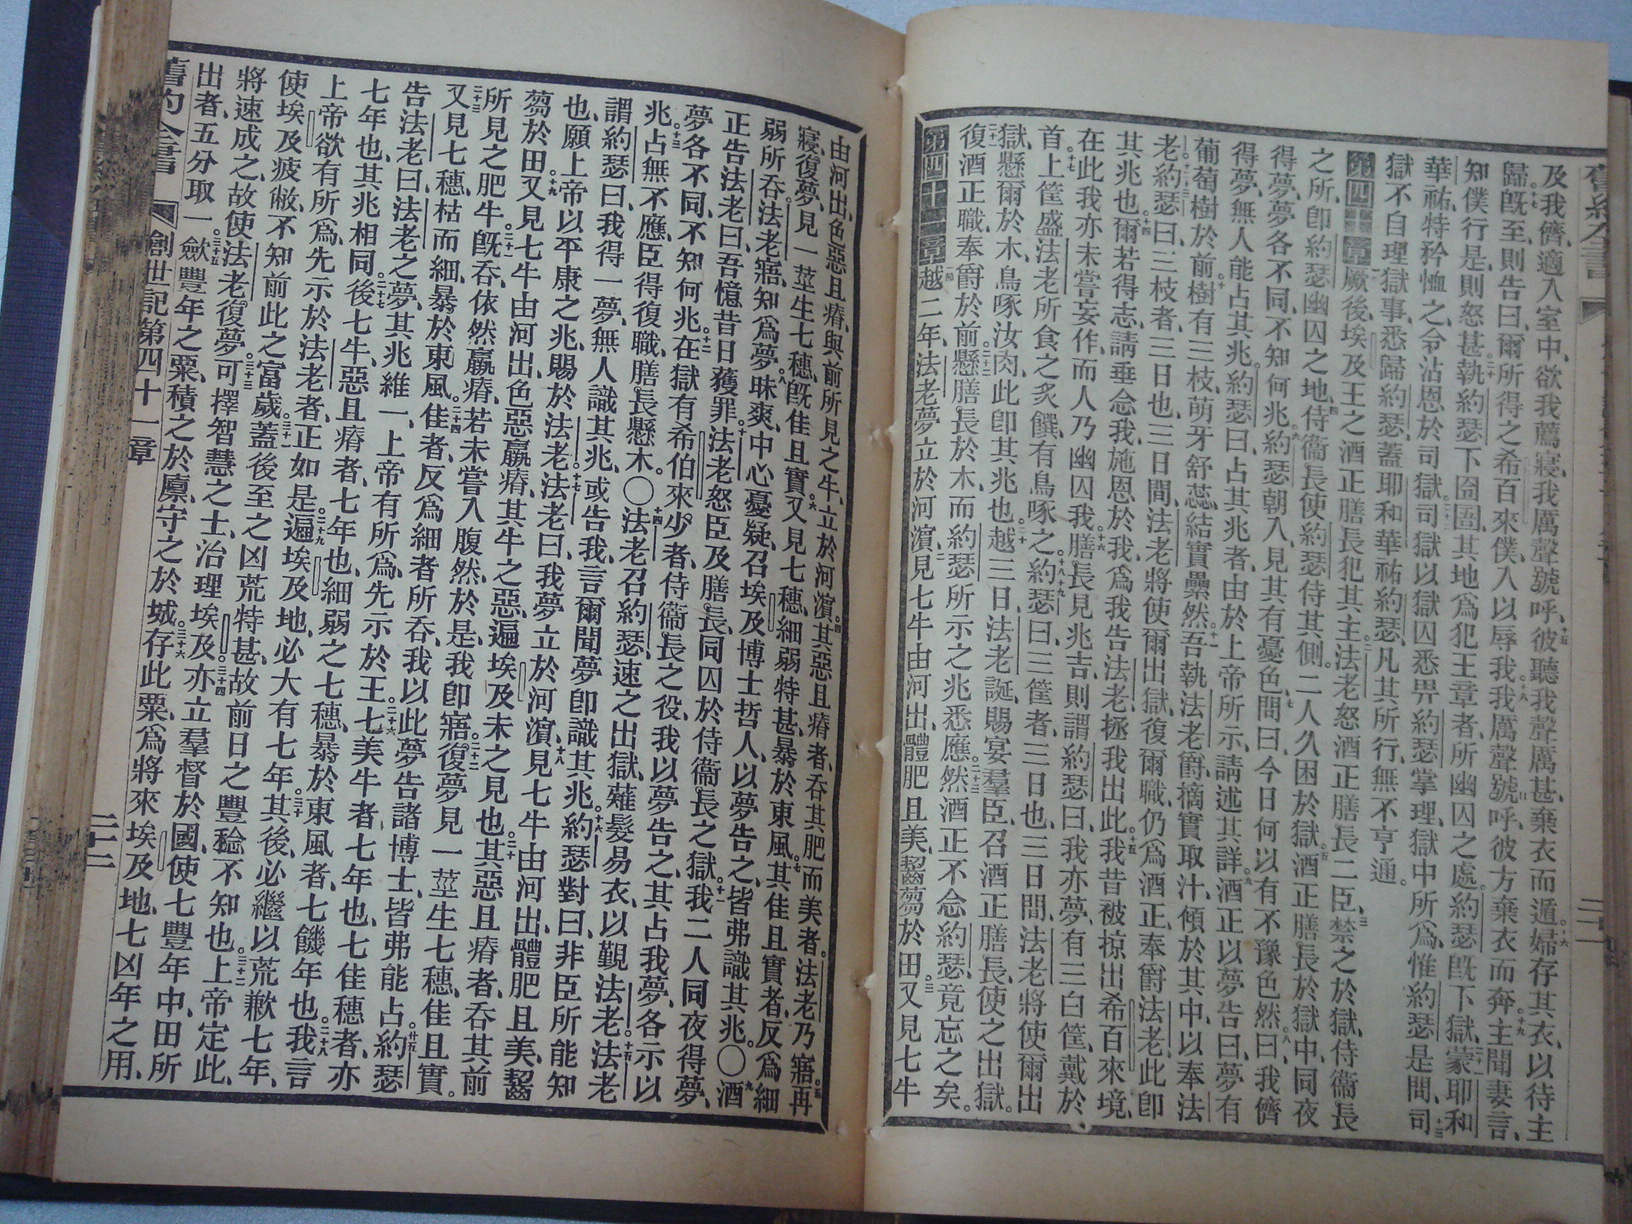 及我儕適入室中、欲我薦寢、我厲聲號呼、彼聽我聲厲甚、棄衣而遁、婦存其衣、以待主
歸、既至、則告曰、爾所得之希百來僕、入以辱我、我厲聲號呼、彼方棄衣而奔、主聞妻言、
知僕行是、則怒甚、執約瑟下囹圄、其地爲犯王章者所幽囚之處、約瑟既下獄、蒙耶和
華祐、特矜恤之、令沾恩於司獄、司獄以獄囚悉畀約瑟掌理、獄中所爲、惟約瑟是問、司
獄不自理、獄事悉歸約瑟、蓋耶和華祐約瑟、凡其所行、無不亨通。
第四十章 厥後埃及王之酒正膳長、犯其主、法老怒酒正膳長二臣、禁之於獄、侍衞長
之所、卽約瑟幽囚之地、侍衞長使約瑟侍其側。二人久困於獄、酒正膳長於獄中、同夜
得夢、夢各不同、不知何兆、約瑟朝入見其有憂色、問曰、今日何以有不豫色然、曰、我儕
得夢、無人能占其兆、約瑟曰、占其兆者、由於上帝所示、請述其詳、酒正以夢告曰、夢有
葡萄樹於前、樹有三枝、萌牙舒蕊、結實纍然、吾執法老爵、摘實取汁、傾於其中、以奉法
老、約瑟曰、三枝者、三日也、三日間、法老將使爾出獄、復爾職、仍爲酒正、奉爵法老、此卽
其兆也、爾若得志、請垂念我、施恩於我、爲我告法老、拯我出此、我昔被掠出希百來境、
在此我亦未嘗妄作、而人乃幽囚我、膳長見兆吉、則謂約瑟曰、我亦夢有三白筐、戴於
首、上筐盛法老所食之炙饌、有鳥啄之、約瑟曰、三筐者、三日也、三日間、法老將使爾出
獄、懸爾於木、鳥啄汝肉、此卽其兆也、越三日、法老誕、賜宴羣臣、召酒正膳長、使之出獄、
復酒正職、奉爵於前、懸膳長於木、而約瑟所示之兆悉應、然酒正不念約瑟、竟忘之矣。
第四十一章 越二年、法老夢立於河濱、見七牛由河出、體肥且美、齧芻於田、又見七牛
由河出、色惡且瘠、與前所見之牛、立於河濱、其惡且瘠者、吞其肥而美者、法老乃寤、再
寢、復夢、見一莖生七穗、既佳且實、又見七穗、細弱特甚、暴於東風、其佳且實者、反爲細
弱所吞、法老寤、知爲夢、昧爽、中心憂疑、召埃及博士哲人、以夢告之、皆弗識其兆。○酒
正告法老曰、吾憶昔日獲罪、法老怒臣及膳長、同囚於侍衞長之獄、我二人同夜得夢、
夢各不同、不知何兆、在獄有希伯來少者、侍衞長之役、我以夢告之、其占我夢、各示以
兆、占無不應、臣得復職、膳長懸木。○法老召約瑟、速之出獄、薙髮易衣、以覲法老、法老
謂約瑟曰、我得一夢、無人識其兆、或告我、言爾聞夢卽識其兆、約瑟對曰、非臣所能知
也、願上帝以平康之兆、賜於法老、法老曰、我夢立於河濱、見七牛由河出、體肥且美、齧
芻於田、又見七牛由河出、色惡羸瘠、其牛之惡、遍埃及未之見也、其惡且瘠者、吞其前
所見之肥牛、既吞、依然羸瘠、若未嘗入腹然、於是我卽寤、復夢見一莖生七穗、佳且實、
又見七穗、枯而細、暴於東風、佳者反爲細者所吞、我以此夢告諸博士、皆弗能占、約瑟
告法老曰、法老之夢、其兆維一、上帝有所爲、先示於王、七美牛者、七年也、七佳穗者、亦
七年也、其兆相同、後七牛、惡且瘠者、七年也、細弱之七穗、暴於東風者、七饑年也、我言
上帝欲有所爲、先示於法老者、正如是、遍埃及地、必大有七年、其後必繼以荒歉七年、
使埃及疲敝、不知前此之富歲、蓋後至之凶荒特甚、故前日之豐稔、不知也、上帝定此、
將速成之、故使法老復夢、可擇智慧之士、治理埃及、亦立羣督於國、使七豐年中、田所
出者、五分取一、斂豐年之粟、積之於廩、守之於城、存此粟、爲將來埃及地、七凶年之用、
創世記第四十一章
二十二